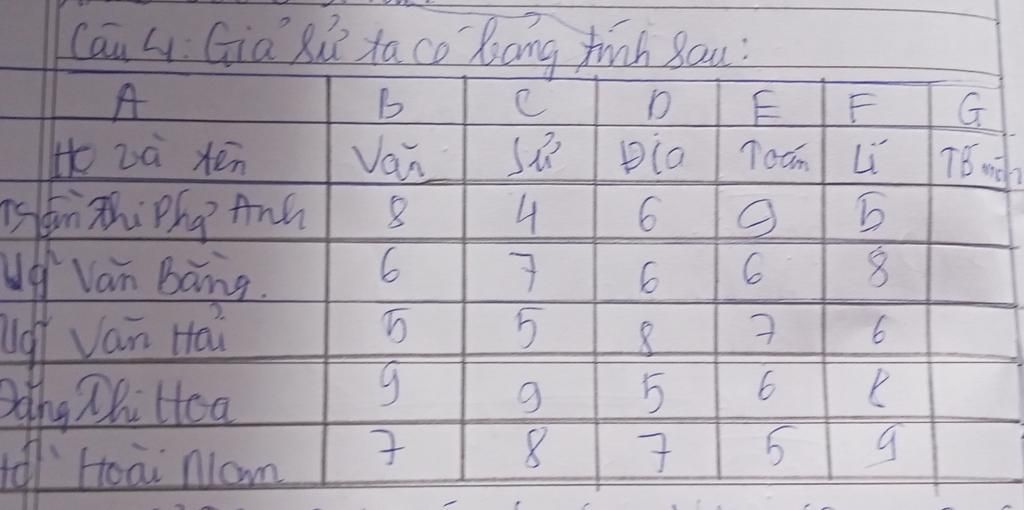 Câu 4: Giả sử ta có bảng tính sau:
A B C D E F G
Họ và tên Văn Sử Địa Toán Lí TB
Thị Anh 8 4 6 9 5
Văn Bằng. 6 7 6 6 8
Văn Hải 5 5 8 7 6
Đặng Thị Hoa 9 9 5 6 8
Hoài Nam 7 8 7 5 9